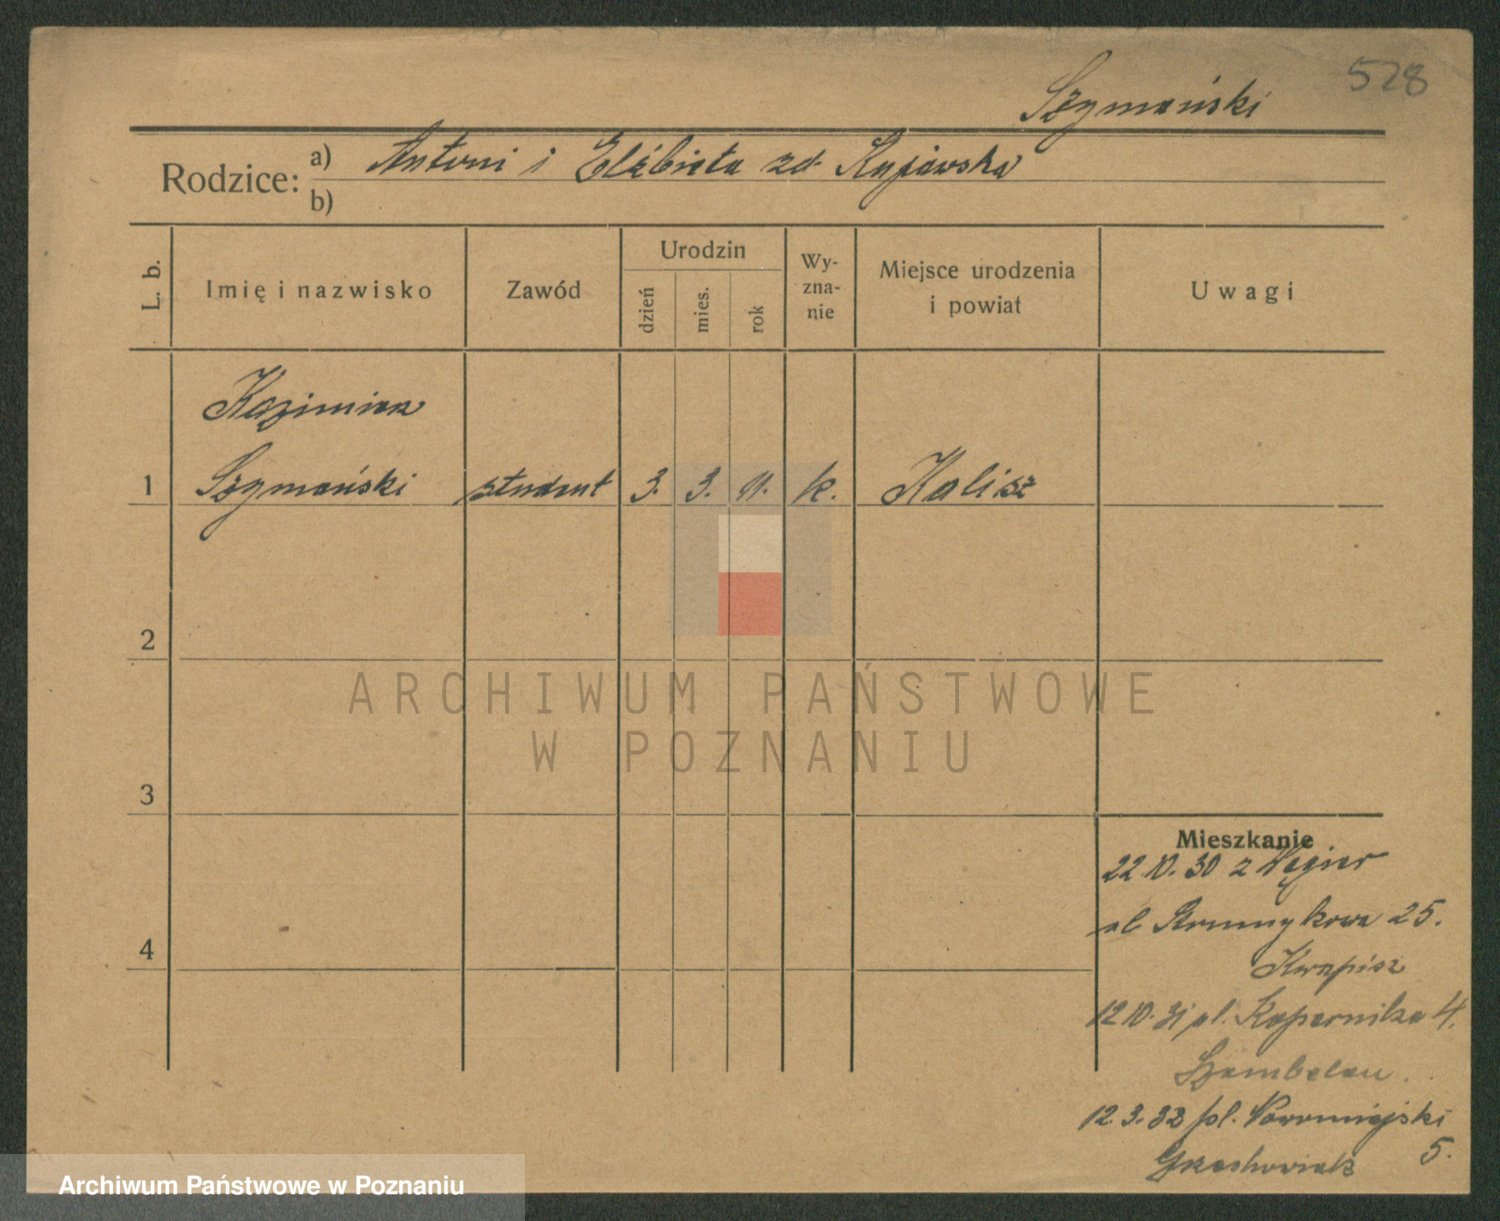 528
Szymański
Rodzice: a) Antoni i Elżbieta zd. Kujawska
b)
L. b. Imię i nazwisko Zawód Urodzin dzień mies. rok Wy-zna-nie Miejsce urodzenia i powiat Uwagi
Kazimierz
1 Szymański student 3. 3. 11. k. Kalisz
2
ARCHIWUM PAŃSTWOWE
W POZNANIU
3
Mieszkanie
22.10.30 z Węgier
ul. 25.
4
Kwapisz
12.10.31 pl. Kopernika 4.
Szambelan
12.3.33 pl. Nowomiejski
5.
Grzechowiak
Archiwum Państwowe w Poznaniu